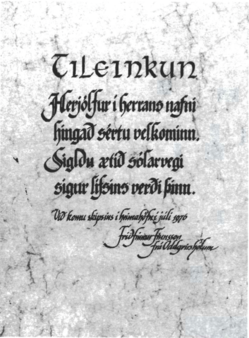 Tileinkun
Herjólfur í herrans nafni
hingað sértu velkominn.
Sigldu ætíð sólarvegi
sigur lífsins verði þinn.
Við komu skipsins í heimahöfn í júlí 1976
Friðfinnur Finnsson
frá Oddgeirshólum